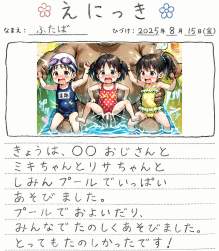 えにっき
なまえ： ふたば ひづけ： 2025年 8月 15日(金)
きょうは、〇〇 おじさんと
ミキちゃんとリサちゃんと
しみんプールでいっぱい
あそびました。
プールでおよいだり、
みんなでたのしくあそびました。
とってもたのしかったです!